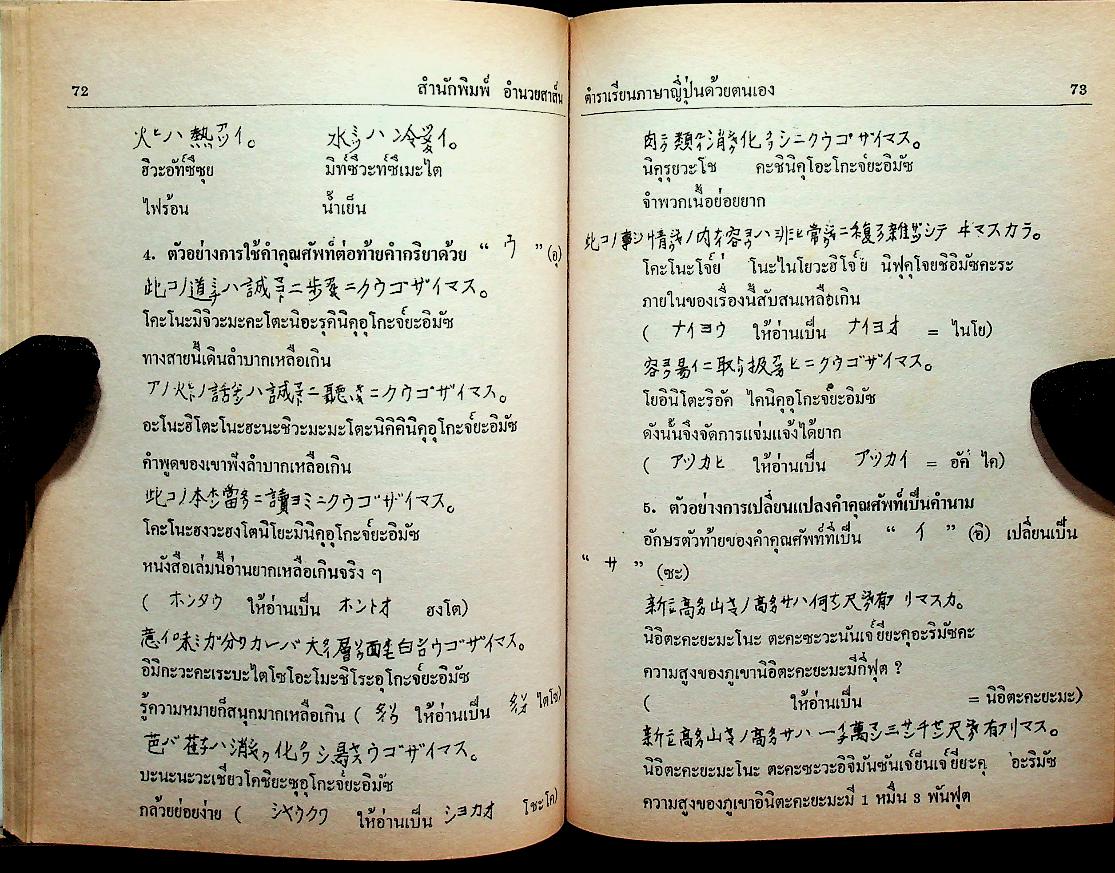 72
สำนักพิมพ์ อำนวยสาส์น
火ヒハ熱アツイ。 水ミヅハ冷
ฮิวะอัท์ซึซุย มิท์ซึวะท์ซึเมะไต
ไฟร้อน น้ำเย็น
4. ตัวอย่างการใช้คำคุณศัพท์ต่อท้ายคำกริยาด้วย “ ウ ” (อุ)
此コノ道ハ誠ニ歩ニクウゴザイマス。
โคะโนะมิจิวะมะคะโตะนิอะรุคินิคุอุโกะจ์ยะอิมัซ
ทางสายนี้เดินลำบากเหลือเกิน
アノ火ノ話ハ誠ニ聽ニクウゴザイマス。
อะโนะฮิโตะโนะฮะนะชิวะมะมะโตะนิคิคินิคุอุโกะจ์ยะอิมัซ
คำพูดของเขาฟังลำบากเหลือเกิน
此コノ本當ニ讀ヨミニクウゴザイマス。
โคะโนะฮงวะฮงโตนิโยะมินิคุอุโกะจ์ยะอิมัซ
หนังสือเล่มนี้อ่านยากเหลือเกินจริง ๆ
( ホンタウ ให้อ่านเป็น ホントオ ฮงโต)
意イ味ミガ分ワカレーバ大層面白ウゴザイマス。
อิมิกะวะคะเระบะไตโซโอะโมะชิโระอุโกะจ์ยะอิมัซ
รู้ความหมายก็สนุกมากเหลือเกิน ( ให้อ่านเป็น ไตโซ)
芭バ蕉ハ消化シ易ウゴザイマス。
บะนะนะวะเชี่ยวโคชิยะซุอุโกะจ์ยะอิมัซ
กล้วยย่อยง่าย ( シヤウクワ ให้อ่านเป็น シヨカオ โชะโค)
ตำราเรียนภาษาญี่ปุ่นด้วยตนเอง
73
肉類消化シニクウゴザイマス。
นิคุรุยวะโช คะชินิคุโอะโกะจ์ยะอิมัซ
จำพวกเนื้อย่อยยาก
此コノ事情ノ内容ハ非常ニ複雜シテヰマスカラ。
โคะโนะโจ์ย โนะไนโยวะฮิโจ์ย นิฟุคุโจยชิอิมัซคะระ
ภายในของเรื่องนี้สับสนเหลือเกิน
( ナイヨウ ให้อ่านเป็น ナイヨオ = ไนโย)
容易イニ取扱ヒニクウゴザイマス。
โยอินิโตะริอัค ไคนิคุอุโกะจ์ยะอิมัซ
ดังนั้นจึงจัดการแจ่มแจ้งได้ยาก
( アツカヒ ให้อ่านเป็น アツカイ = อัค ไค)
5. ตัวอย่างการเปลี่ยนแปลงคำคุณศัพท์ที่เป็นคำนาม
อักษรตัวท้ายของคำคุณศัพท์ที่เป็น “ イ ” (อิ) เปลี่ยนเป็น
“ サ ” (ซะ)
新高山ノ高サハ何尺有リマスカ。
นิอิตะคะยะมะโนะ ตะคะซะวะนันเจ์ยียะคุอะริมัซคะ
ความสูงของภูเขานิอิตะคะยะมะมีกี่ฟุต ?
( ให้อ่านเป็น = นิอิตะคะยะมะ)
新高山ノ高サハ一萬三千尺有リマス。
นิอิตะคะยะมะโนะ ตะคะซะวะอิจิมันซันเจ์ยีนเจ์ยียะคุ อะริมัซ
ความสูงของภูเขาอินิตะคะยะมะมี 1 หมื่น 3 พันฟุต